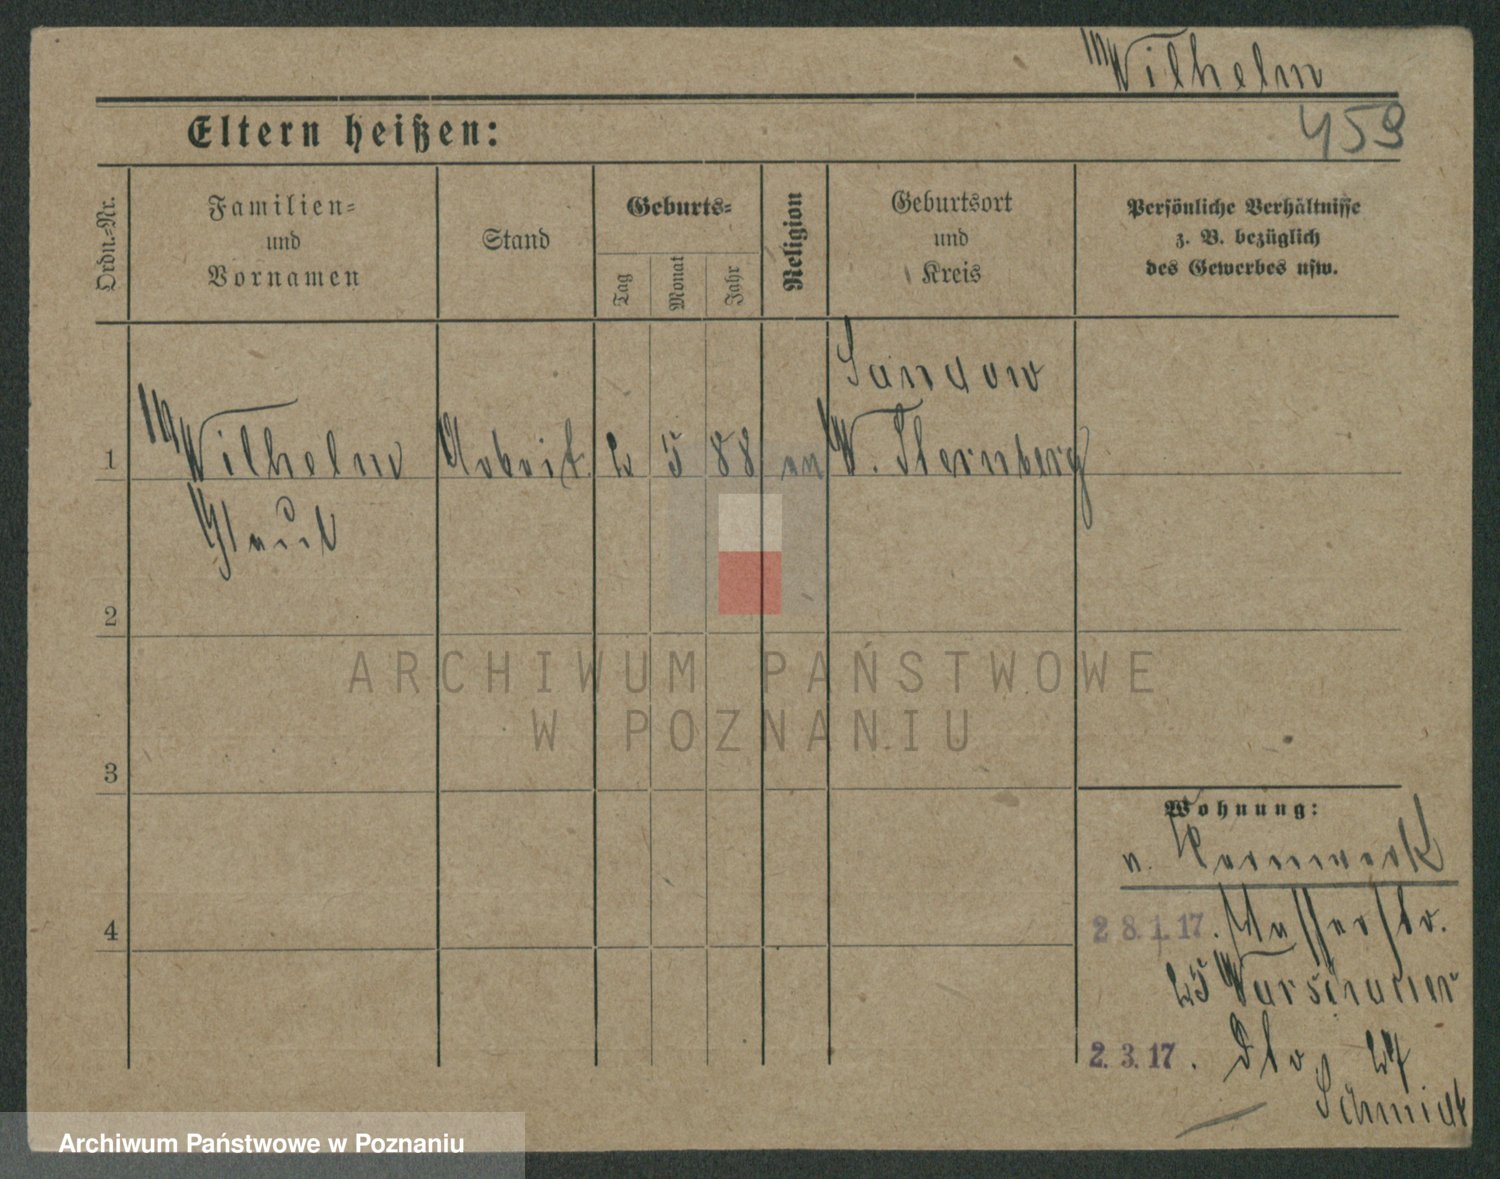 Wilhelm
459
Eltern heißen:
Ordn.-Nr.
Familien-
und
Vornamen
Stand
Geburts-
Tag
Monat
Jahr
Religion
Geburtsort
und
Kreis
Persönliche Verhältnisse
z. B. bezüglich
des Gewerbes usw.
Sandow
1 Wilhelm Arbeit. 2 5 88 W. Sternberg
Paul
2
3
4
Wohnung:
v. Kernwerk
28.1.17.
25 Warschauer
2.3.17. 27
Schmidt
ARCHIWUM PAŃSTWOWE
W POZNANIU
Archiwum Państwowe w Poznaniu